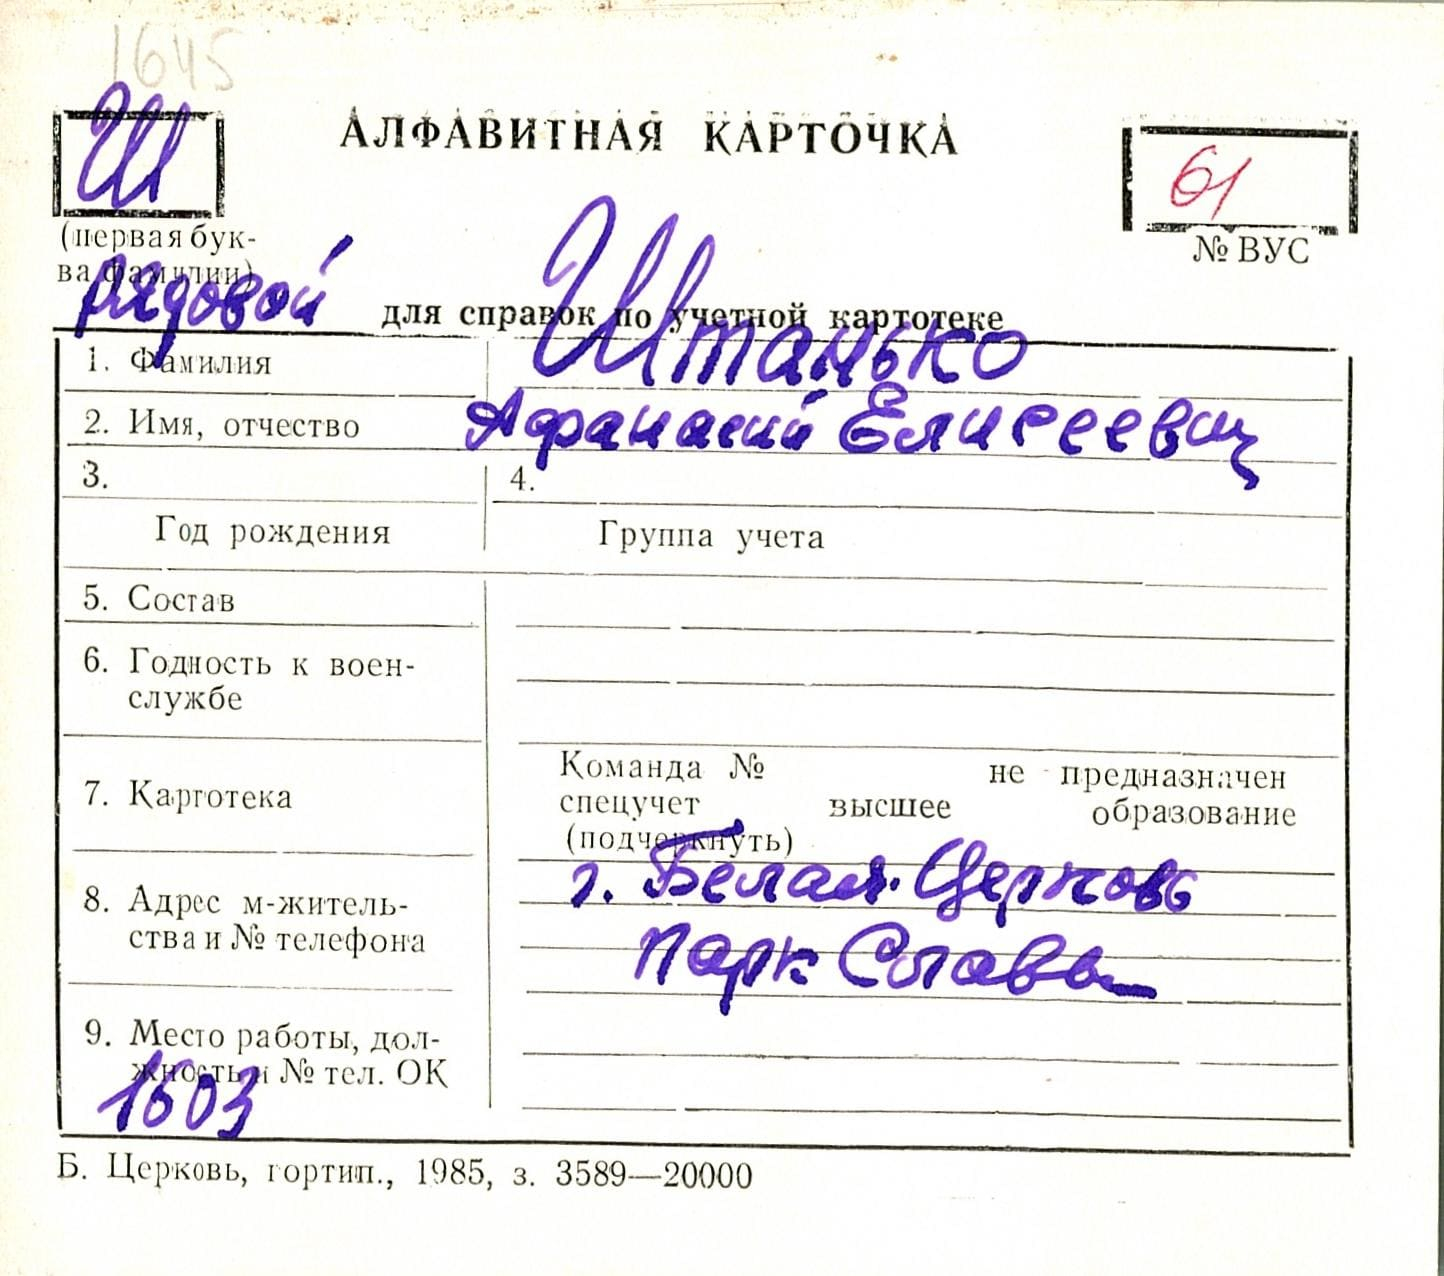 1645
Ш
АЛФАВИТНАЯ КАРТОЧКА
61
(первая бук-
ва фамилии)
№ ВУС
рядовой
для справок по учетной картотеке
1. Фамилия Штанько
2. Имя, отчество Афанасий Елисеевич
3. 4.
Год рождения Группа учета
5. Состав
6. Годность к воен-
службе
Команда № не предназначен
7. Картотека спецучет высшее образование
(подчеркнуть)
8. Адрес м-житель- г. Белая Церковь
ства и № телефона парк Славы
9. Место работы, дол-
жность и № тел. ОК
1603
Б. Церковь, гортип., 1985, з. 3589—20000